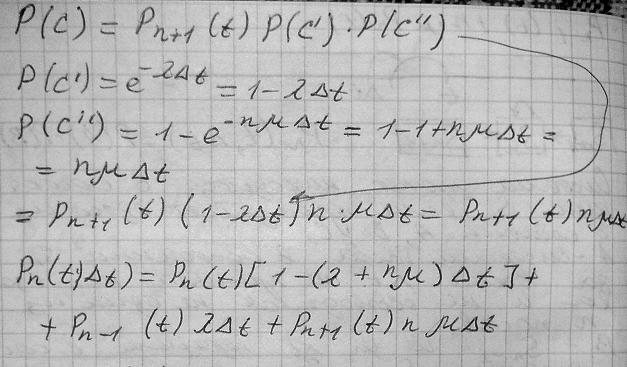 P(C) = Pn+1 (t) P(C') · P(C'')
P(C') = e^-λΔt = 1-λΔt
P(C'') = 1-e^-nμΔt = 1-1+nμΔt =
= nμΔt
= Pn+1 (t) (1-λΔt) n·μΔt = Pn+1 (t) nμΔt
Pn(t;Δt) = Pn(t)[1-(λ+nμ)Δt]+
+Pn-1 (t) λΔt + Pn+1 (t) n μΔt